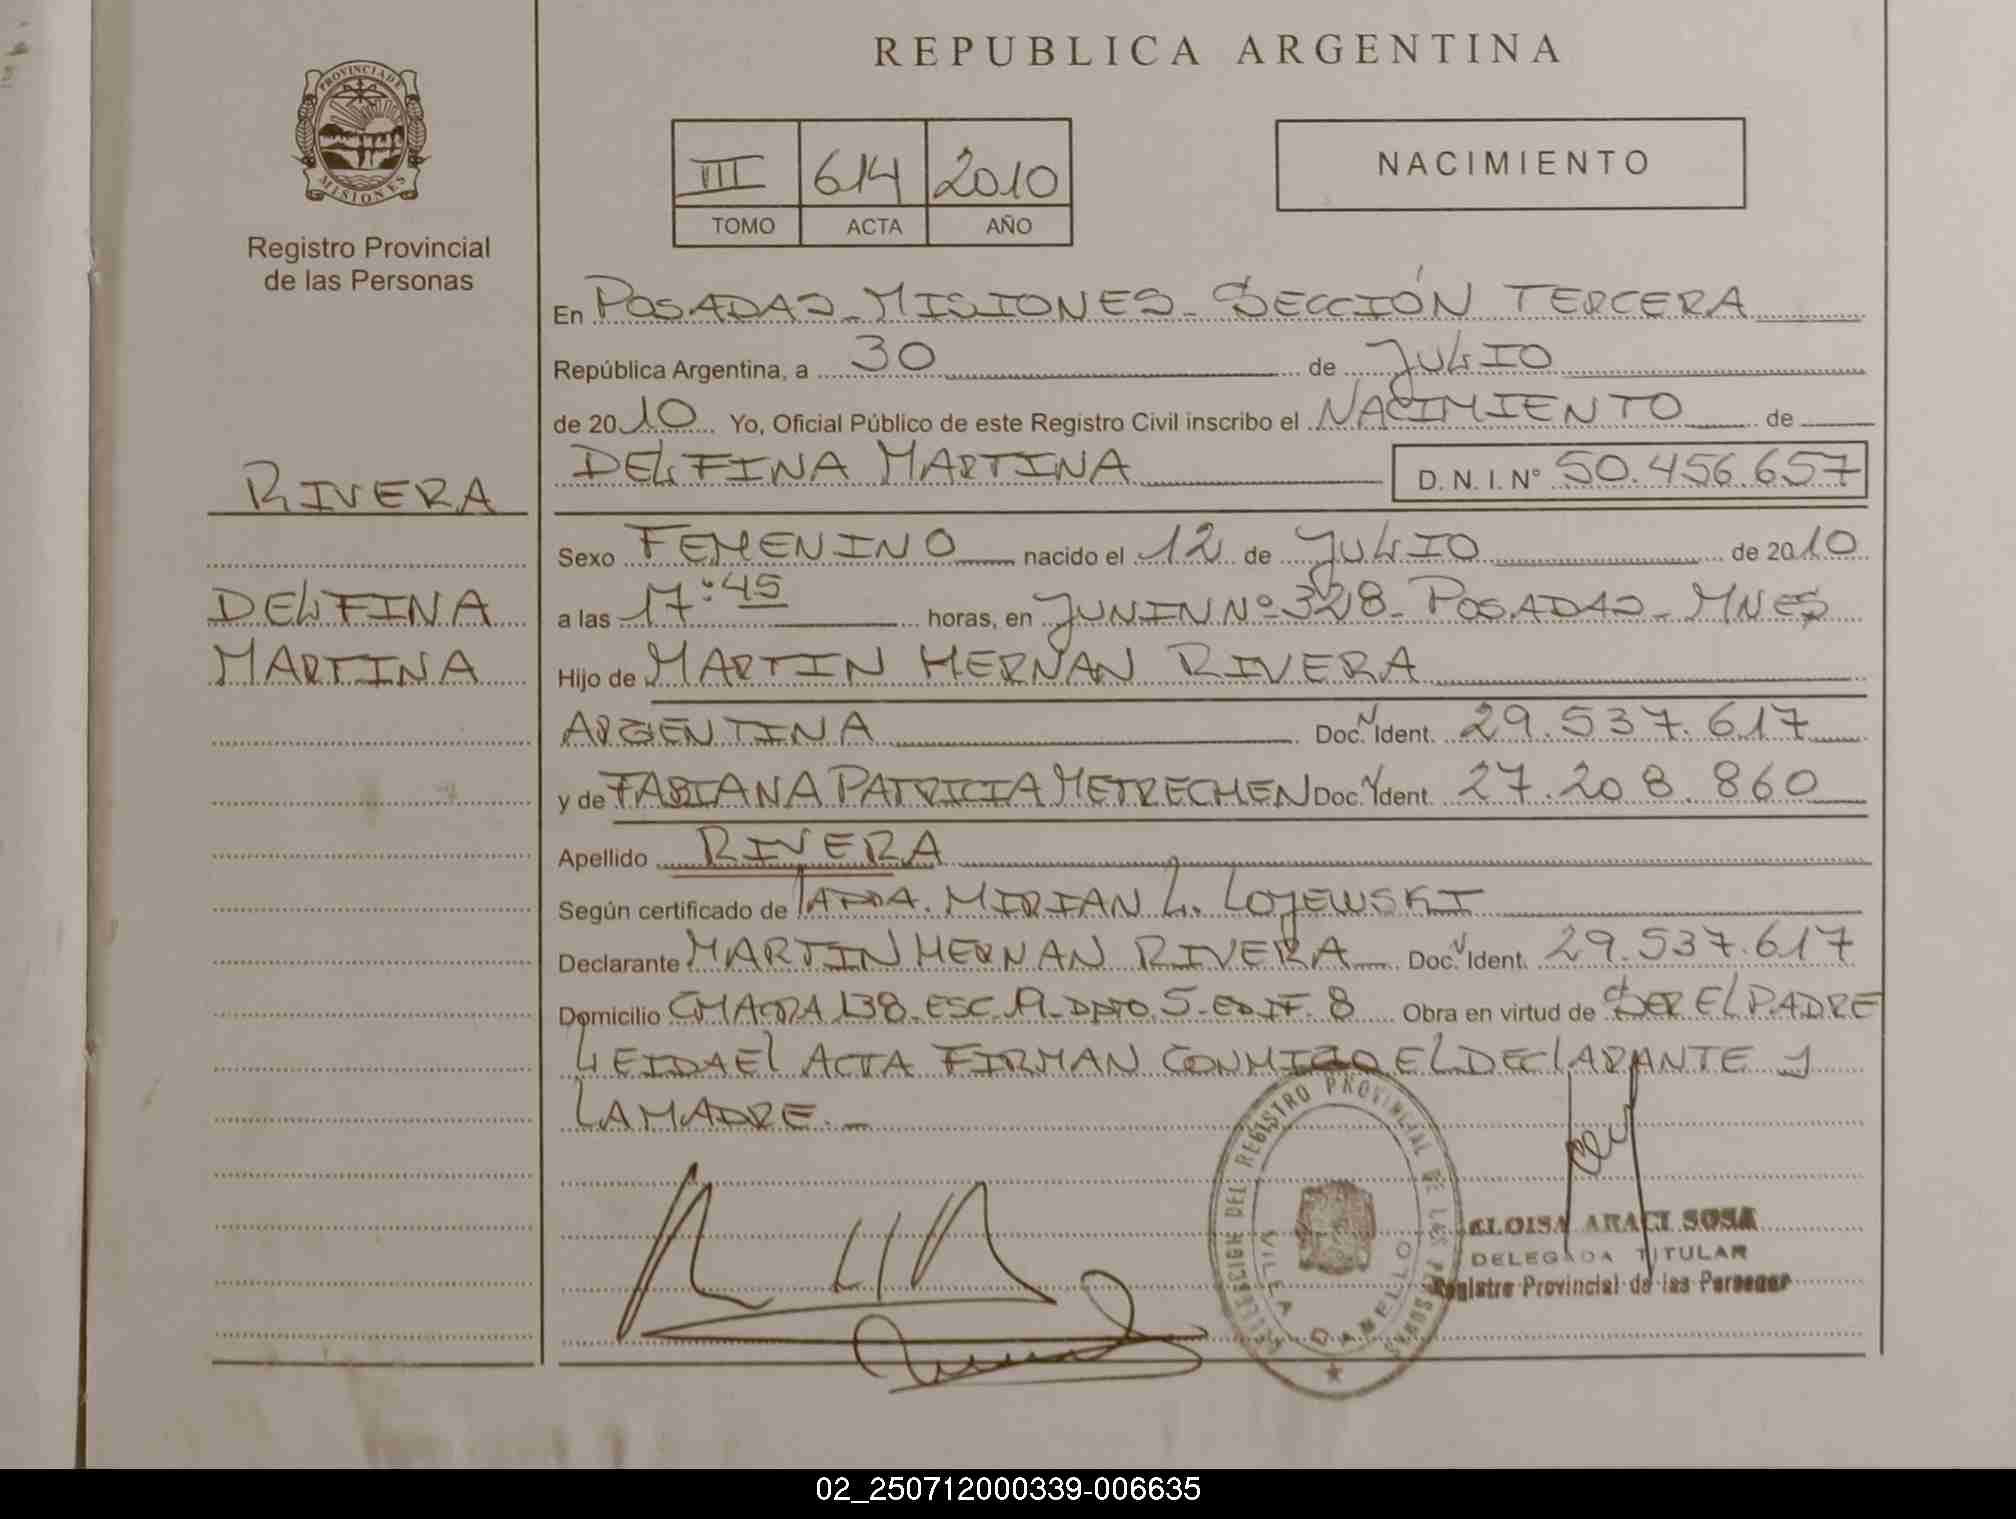 REPUBLICA ARGENTINA
PROVINCIA DE
MISIONES
Registro Provincial
de las Personas
III 614 2010
TOMO ACTA AÑO
NACIMIENTO
En POSADAS - MISIONES - SECCIÓN TERCERA
República Argentina, a 30 de JULIO
de 2010 Yo, Oficial Público de este Registro Civil inscribo el NACIMIENTO de
DELFINA MARTINA D. N. I. Nº 50.456.657
RIVERA
DELFINA
MARTINA
Sexo FEMENINO nacido el 12 de JULIO de 2010
a las 17:45 horas, en JUNIN Nº 328 - POSADAS - MNES
Hijo de MARTIN HERNAN RIVERA
ARGENTINA Doc. Ident. 29.537.617
y de FABIANA PATRICIA METRECHEN Doc. Ident. 27.208.860
Apellido RIVERA
Según certificado de MIRIAN L. LOJEWSKI
Declarante MARTIN HERNAN RIVERA Doc. Ident. 29.537.617
Domicilio CHACRA 138 - ESC. 19 - DPTO. 5 - EDIF. 8 Obra en virtud de SER EL PADRE
LEIDA EL ACTA FIRMAN CONMIGO EL DECLARANTE Y
LA MADRE. -
DELEGACION DEL REGISTRO PROVINCIAL DE LAS PERSONAS
VILLA DANELLO
ELOISA ARACI SOSA
DELEGADA TITULAR
Registro Provincial de las Personas
02_250712000339-006635